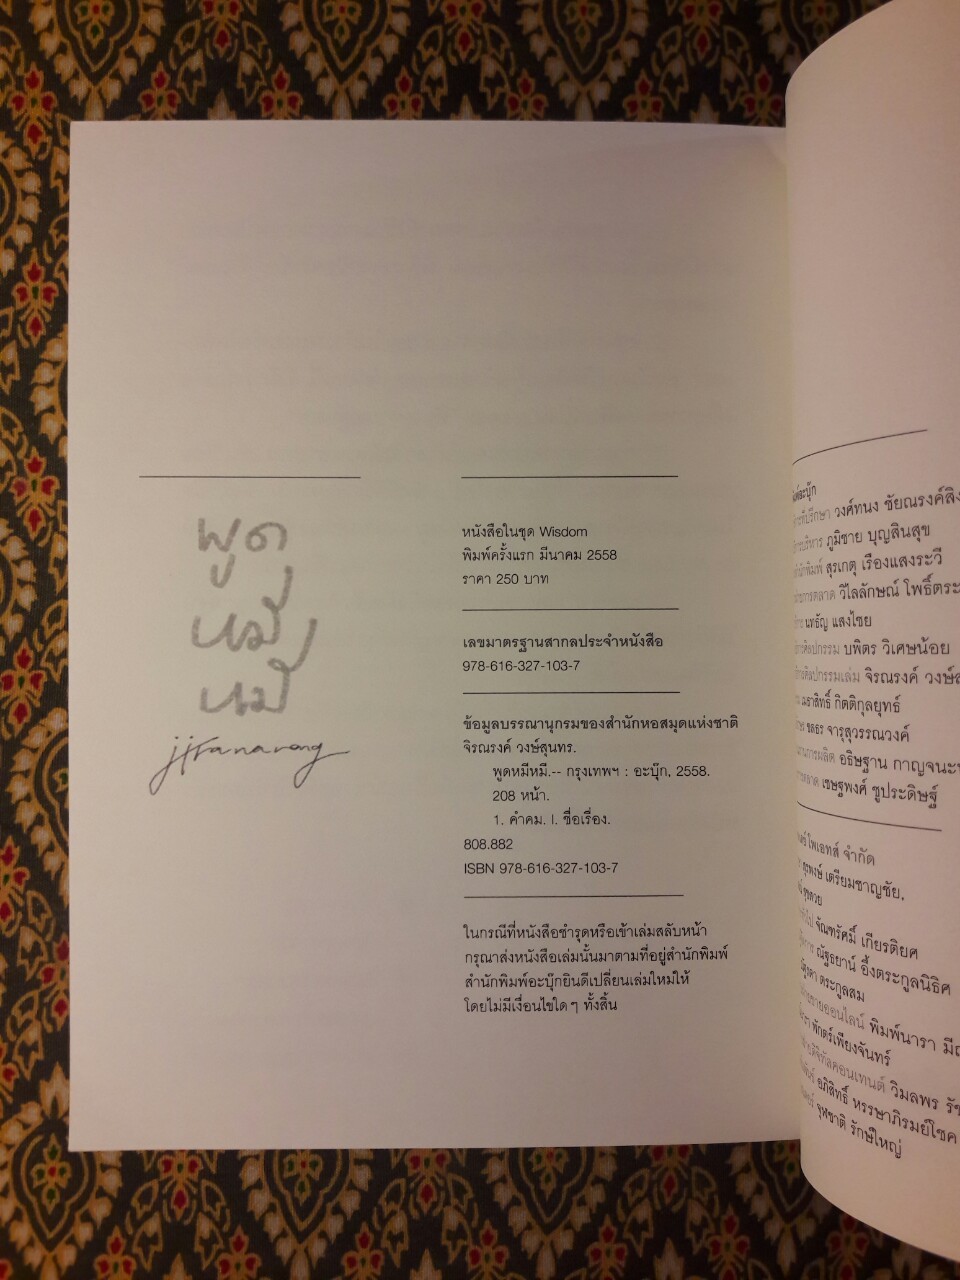 พูด
หมี
หมี
jiranarong
หนังสือในชุด Wisdom
พิมพ์ครั้งแรก มีนาคม 2558
ราคา 250 บาท
เลขมาตรฐานสากลประจำหนังสือ
978-616-327-103-7
ข้อมูลบรรณานุกรมของสำนักหอสมุดแห่งชาติ
จิรณรงค์ วงษ์สุนทร.
พูดหมีหมี.-- กรุงเทพฯ : อะบุ๊ก, 2558.
208 หน้า.
1. คำคม. I. ชื่อเรื่อง.
808.882
ISBN 978-616-327-103-7
ในกรณีที่หนังสือชำรุดหรือเข้าเล่มสลับหน้า
กรุณาส่งหนังสือเล่มนั้นมาตามที่อยู่สำนักพิมพ์
สำนักพิมพ์อะบุ๊กยินดีเปลี่ยนเล่มใหม่ให้
โดยไม่มีเงื่อนไขใด ๆ ทั้งสิ้น
วงศ์ทนง ชัยณรงค์สิง
ภูมิชาย บุญสินสุข
สุรเกตุ เรืองแสงระวี
วิไลลักษณ์ โพธิ์ตระ
แทธัญ แสงไชย
บพิตร วิเศษน้อย
จิรณรงค์ วงษ์ส
เมธาสิทธิ์ กิตติกุลยุทธ์
ชลธร จารุสุวรรณวงค์
อธิษฐาน กาญจนะพ
เชษฐพงศ์ ชูประดิษฐ์
โพเอทส์ จำกัด
สุรพงษ์ เตรียมชาญชัย.
จัณฑรัศมิ์ เกียรติยศ
ณัฐธยาน์ อึ้งตระกูลนิธิศ
ตระกูลสม
พิมพ์นารา มี
พักตร์เพียงจันทร์
วิมลพร รัช
อภิสิทธิ์ หรรษาภิรมย์โชค
จุฬชาติ รักษ์ใหญ่